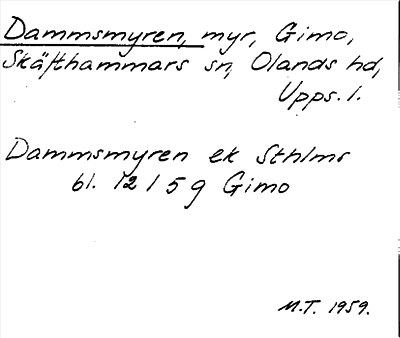 Dammsmyren, myr, Gimo,
Skäfthammars sn, Olands hd,
Upps. l.
Dammsmyren ek Sthlms
bl. 12 I 5 g Gimo
M.T. 1959.